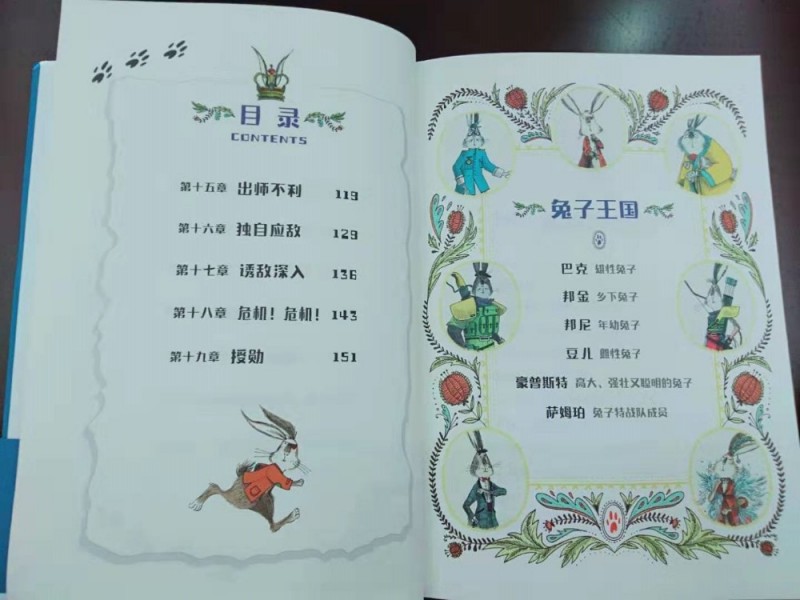 目录
CONTENTS
第十五章 出师不利 119
第十六章 独自应敌 129
第十七章 诱敌深入 136
第十八章 危机！危机！ 143
第十九章 授勋 151
兔子王国
巴克 雄性兔子
邦金 乡下兔子
邦尼 年幼兔子
豆儿 雌性兔子
豪普斯特 高大、强壮又聪明的兔子
萨姆珀 兔子特战队成员